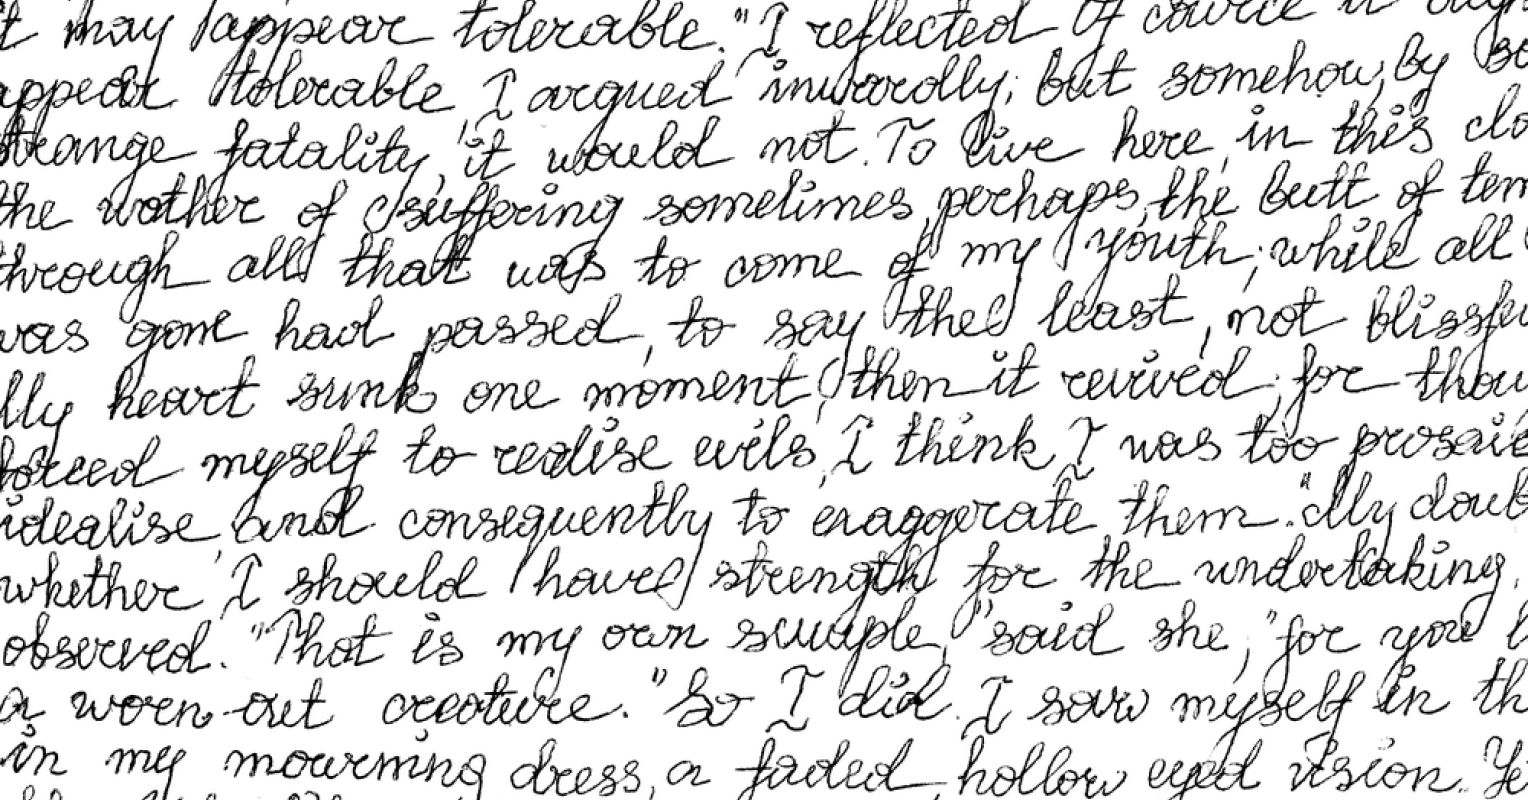 t may appear tolerable." I reflected. Of course it
appear tolerable, I argued inwardly; but somehow, by so
strange fatality, it would not. To live here, in this clo
the wother of suffering sometimes, perhaps, the butt of tem
through all that was to come of my youth; while all
was gone had passed, to say the least, not blissfu
lly heart sunk one moment, then it revived; for thou
forced myself to realise evils, I think I was too prosaic
idealise, and consequently to exaggerate them. "My doub
whether I should have strength for the undertaking,
observed. "That is my own scruple," said she, "for you l
a worn-out creature." So I did. I saw myself in th
in my mourning dress, a faded, hollow eyed vision. Ye